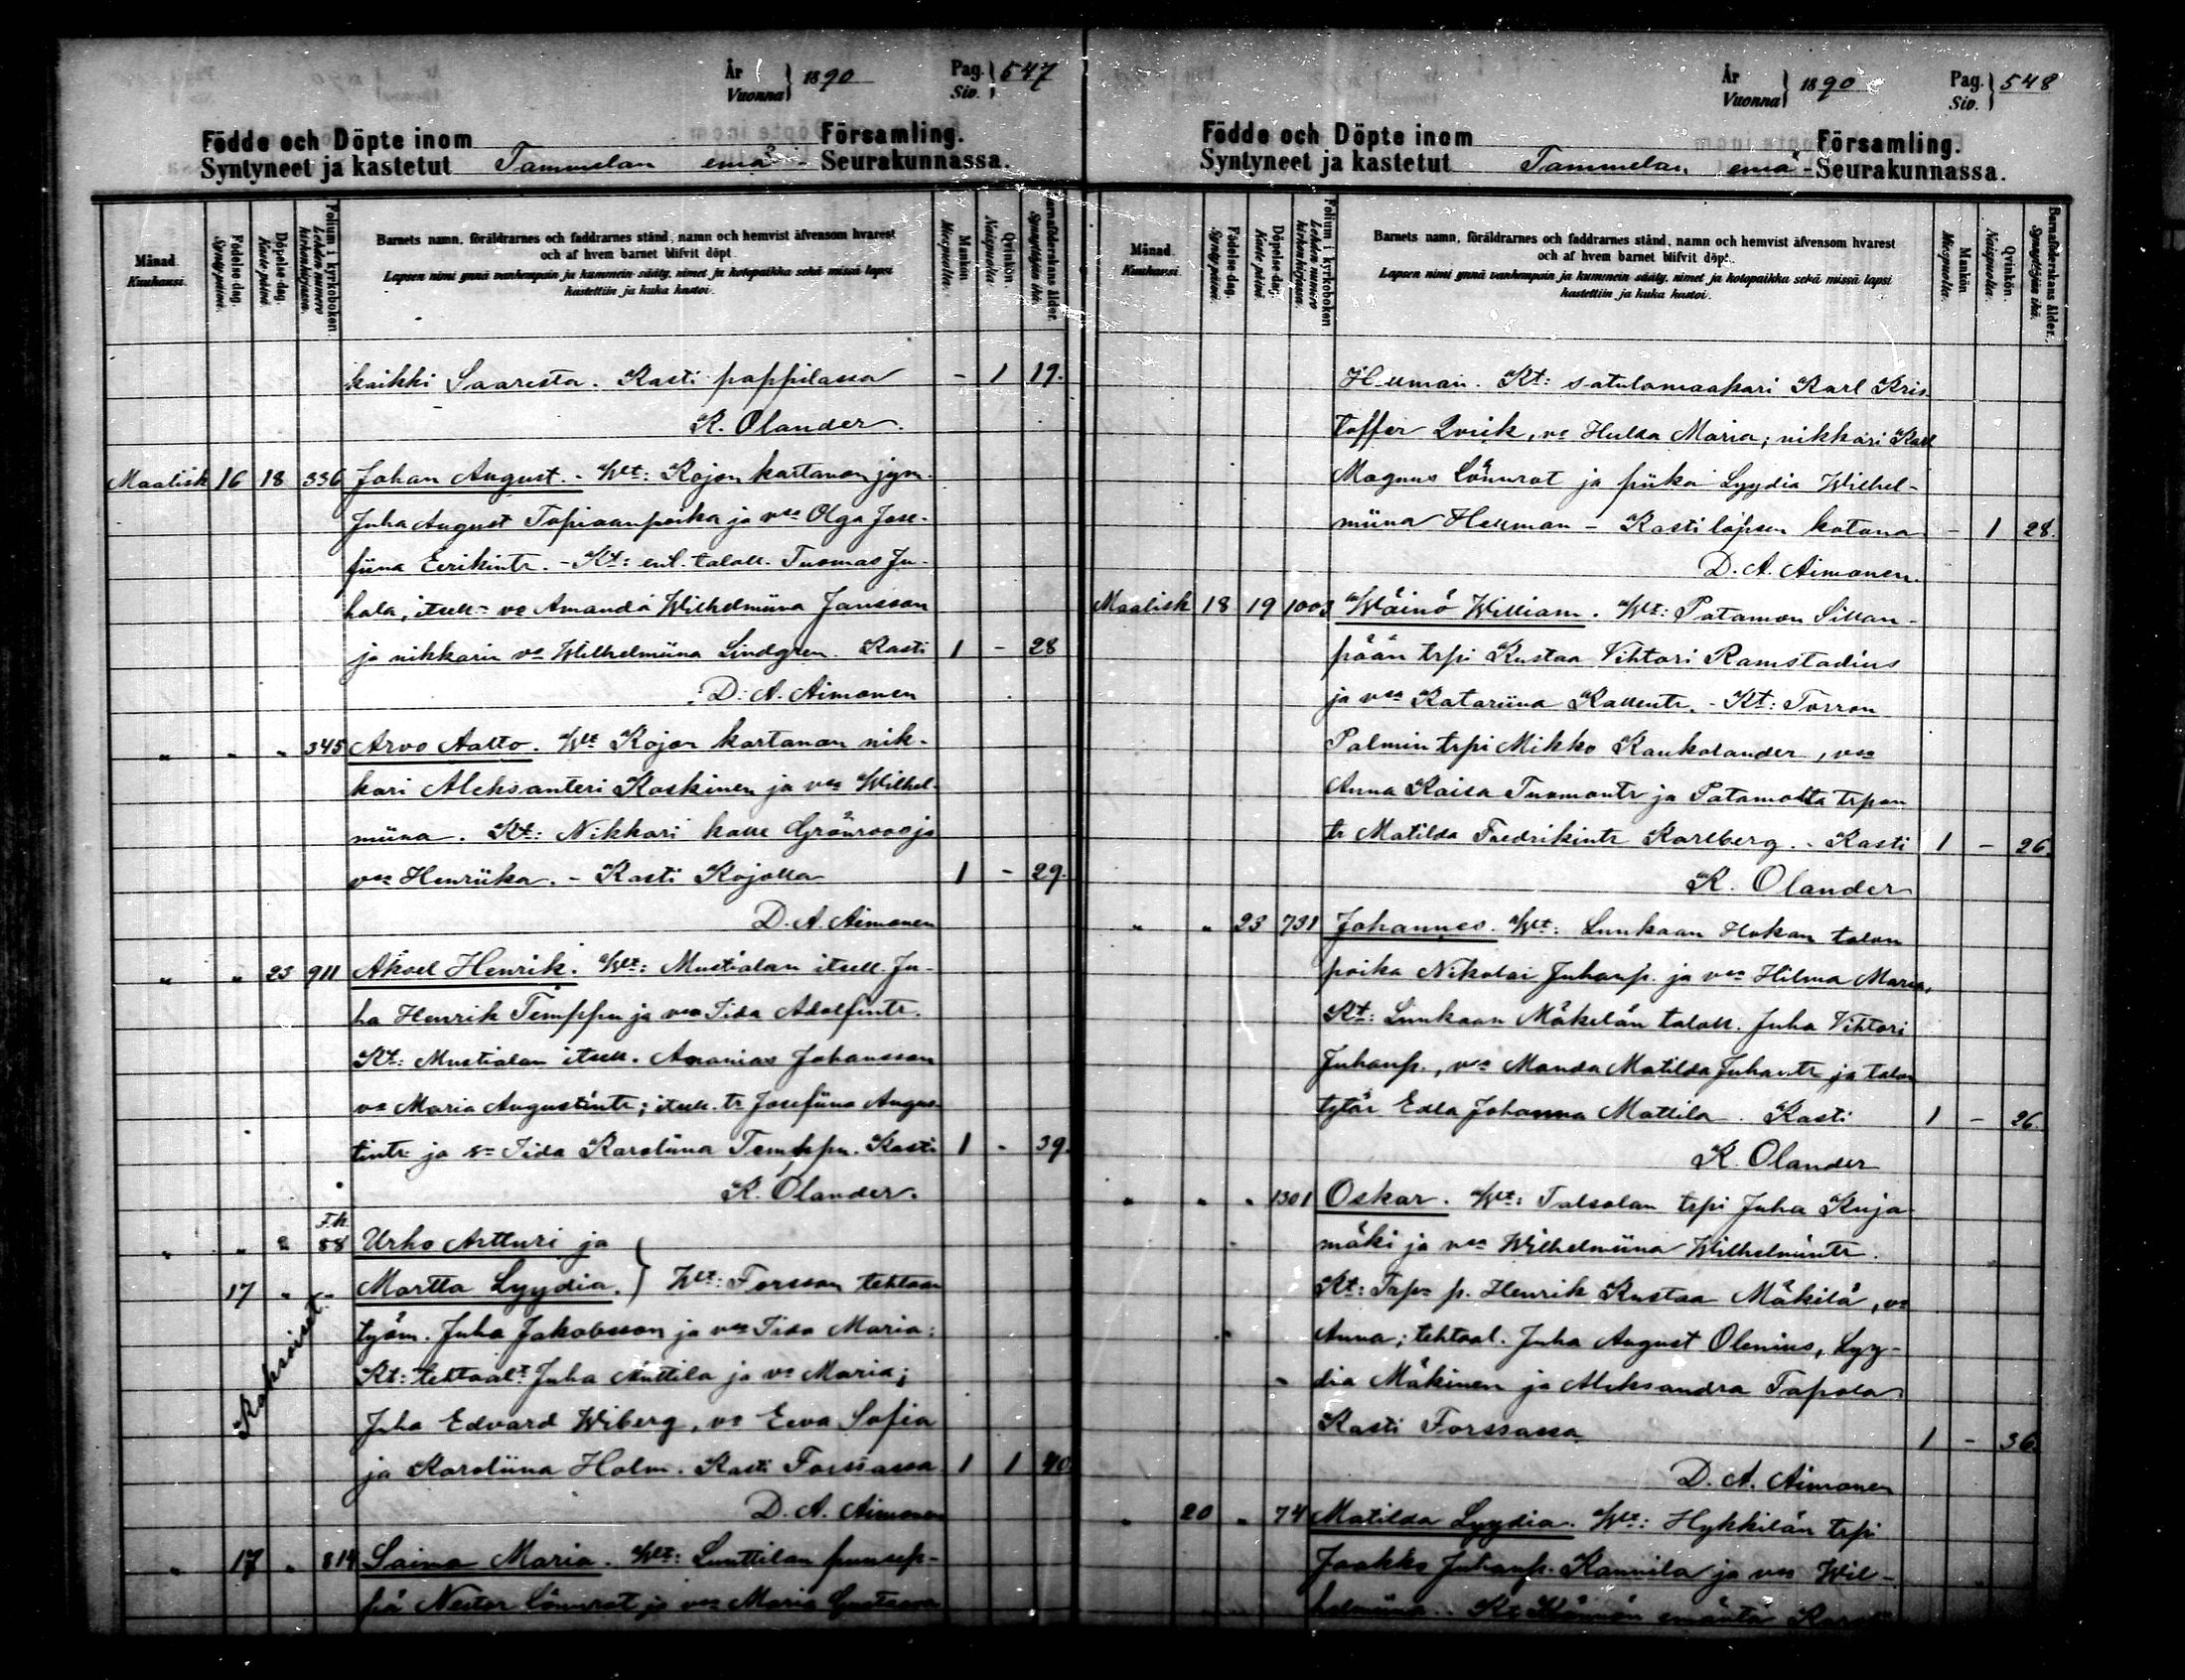 År
Vuonna } 1890
Pag.
Siv. } 547
Födde och Döpte inom Församling.
Syntyneet ja kastetut Tammelan emä- Seurakunnassa.
Månad.
Kuukausi.
Födelse-dag.
Syntypäivä.
Döpelse-dag.
Kaste päivä.
Folium i kyrkoboken.
Lehden numero kirkonkirjassa.
Barnets namn, föräldrarnes och faddrarnes stånd, namn och hemvist äfvensom hvarest
och af hvem barnet blifvit döpt.
Lapsen nimi ynnä vanhempain ja kummein sääty, nimet ja kotopaikka sekä missä lapsi
kastettiin ja kuka kastoi.
Mankön.
Miespuolta.
Qvinkön.
Naispuolta.
Barnaföderskans ålder.
Synnyttäjän ikä.
kaikki Saaresta. Kasti pappilassa - 1 19.
K. Olander.
Maalisk 16 18 336 Johan August. - Wlt: Kojon kartanon jym.
Juha August Tapiaanpoika ja vsa Olga Jose-
fiina Eerikintr. - Kt: ent. taloll. Tuomas Ju-
hala, itsell= vo Amanda Wilhelmiina Jansson
ja nikkarin vo Wilhelmiina Lindgren. Kasti 1 - 28
D. A. Aimonen
" " " 345 Arvo Aatto. Wlt Kojon kartanon nik-
kari Aleksanteri Koskinen ja vsa Wilhel-
miina. Kt: Nikkari Kalle Grönroos ja
vsa Henriika. - Kasti Kojolla 1 - 29.
D. A. Aimonen
" " 23 911 Aksel Henrik. Wlt: Mustialan itsell. Ju-
ha Henrik Temppu ja vsa Iida Adolfintr.
Kt: Mustialan itsell. Ananias Johansson
vo Maria Augustintr; itsell. tr Josefiina Augus-
tintr ja s= Iida Karoliina Temppu. Kasti 1 - 39.
K. Olander.
F.k.
" " " 88 Urho Artturi ja
17 " - Martta Lyydia. } Wlt: Forssan tehtaan
Kaksoiset.
työm. Juha Jakobsson ja vsa Iida Maria:
Kt: tehtaalt Juha Anttila ja vo Maria;
Juha Edvard Wiberg, vo Eeva Sofia
ja Karoliina Holm. Kasti Forssassa 1 1 40
D. A. Aimonen
" 17 " 814 Saima Maria. Wlt: Lunttilan puusep-
pä Nestor Lönnrot ja vsa Maria
År
Vuonna } 1890
Pag.
Siv. } 548
Födde och Döpte inom Församling.
Syntyneet ja kastetut Tammelan emä- Seurakunnassa.
Månad.
Kuukausi.
Födelse-dag.
Syntypäivä.
Döpelse-dag.
Kaste päivä.
Folium i kyrkoboken.
Lehden numero kirkonkirjassa.
Barnets namn, föräldrarnes och faddrarnes stånd, namn och hemvist äfvensom hvarest
och af hvem barnet blifvit döpt.
Lapsen nimi ynnä vanhempain ja kummein sääty, nimet ja kotopaikka sekä missä lapsi
kastettiin ja kuka kastoi.
Mankön.
Miespuolta.
Qvinkön.
Naispuolta.
Barnaföderskans ålder.
Synnyttäjän ikä.
Hellman. Kt: satulamaakari Karl Kris-
toffer Qvick, vo Hulda Maria; nikkari Karl
Magnus Lönnrot ja piika Lyydia Wilhel-
miina Hellman - Kasti lapsen kotona - 1 28.
D. A. Aimonen.
Maalisk 18 19 1003 Wäinö William. Wlt: Patamon Sillan-
pään trpi Kustaa Vihtori Ramstadius
ja vsa Katariina Kallentr. - Kt: Torron
Palmin trpi Mikko Kaukolander, vsa
Anna Kaisa Tuomontr ja Patamolta trpan
tr Matilda Fredrikintr Karlberg. - Kasti 1 - 26.
K. Olander
" " 23 731 Johannes. Wlt: Lunkaan Hokan talon
poika Nikolai Juhanp. ja vsa Hilma Maria.
Kt: Lunkaan Mäkelän taloll. Juha Vihtori
Juhanp., vsa Manda Matilda Juhantr ja talon
tytär Edla Johanna Mattila. Kasti 1 - 26.
K. Olander
" " " 1301 Oskar. Wlt: Talsolan trpi Juha Kuja-
mäki ja vsa Wilhelmiina Wilhelmintr.
Kt: Trpn p. Henrik Kustaa Mäkilä, vo
Anna; tehtaal. Juha August Olenius, Lyy-
dia Mäkinen ja Aleksandra Tapola.
Kasti Forssassa 1 - 36.
D. A. Aimonen
" 20 " 74 Matilda Lyydia. Wlt: Hykkilän trpi
Jaakko Juhanp. Kannila ja vsa Wil-
helmiina. Kt emäntä